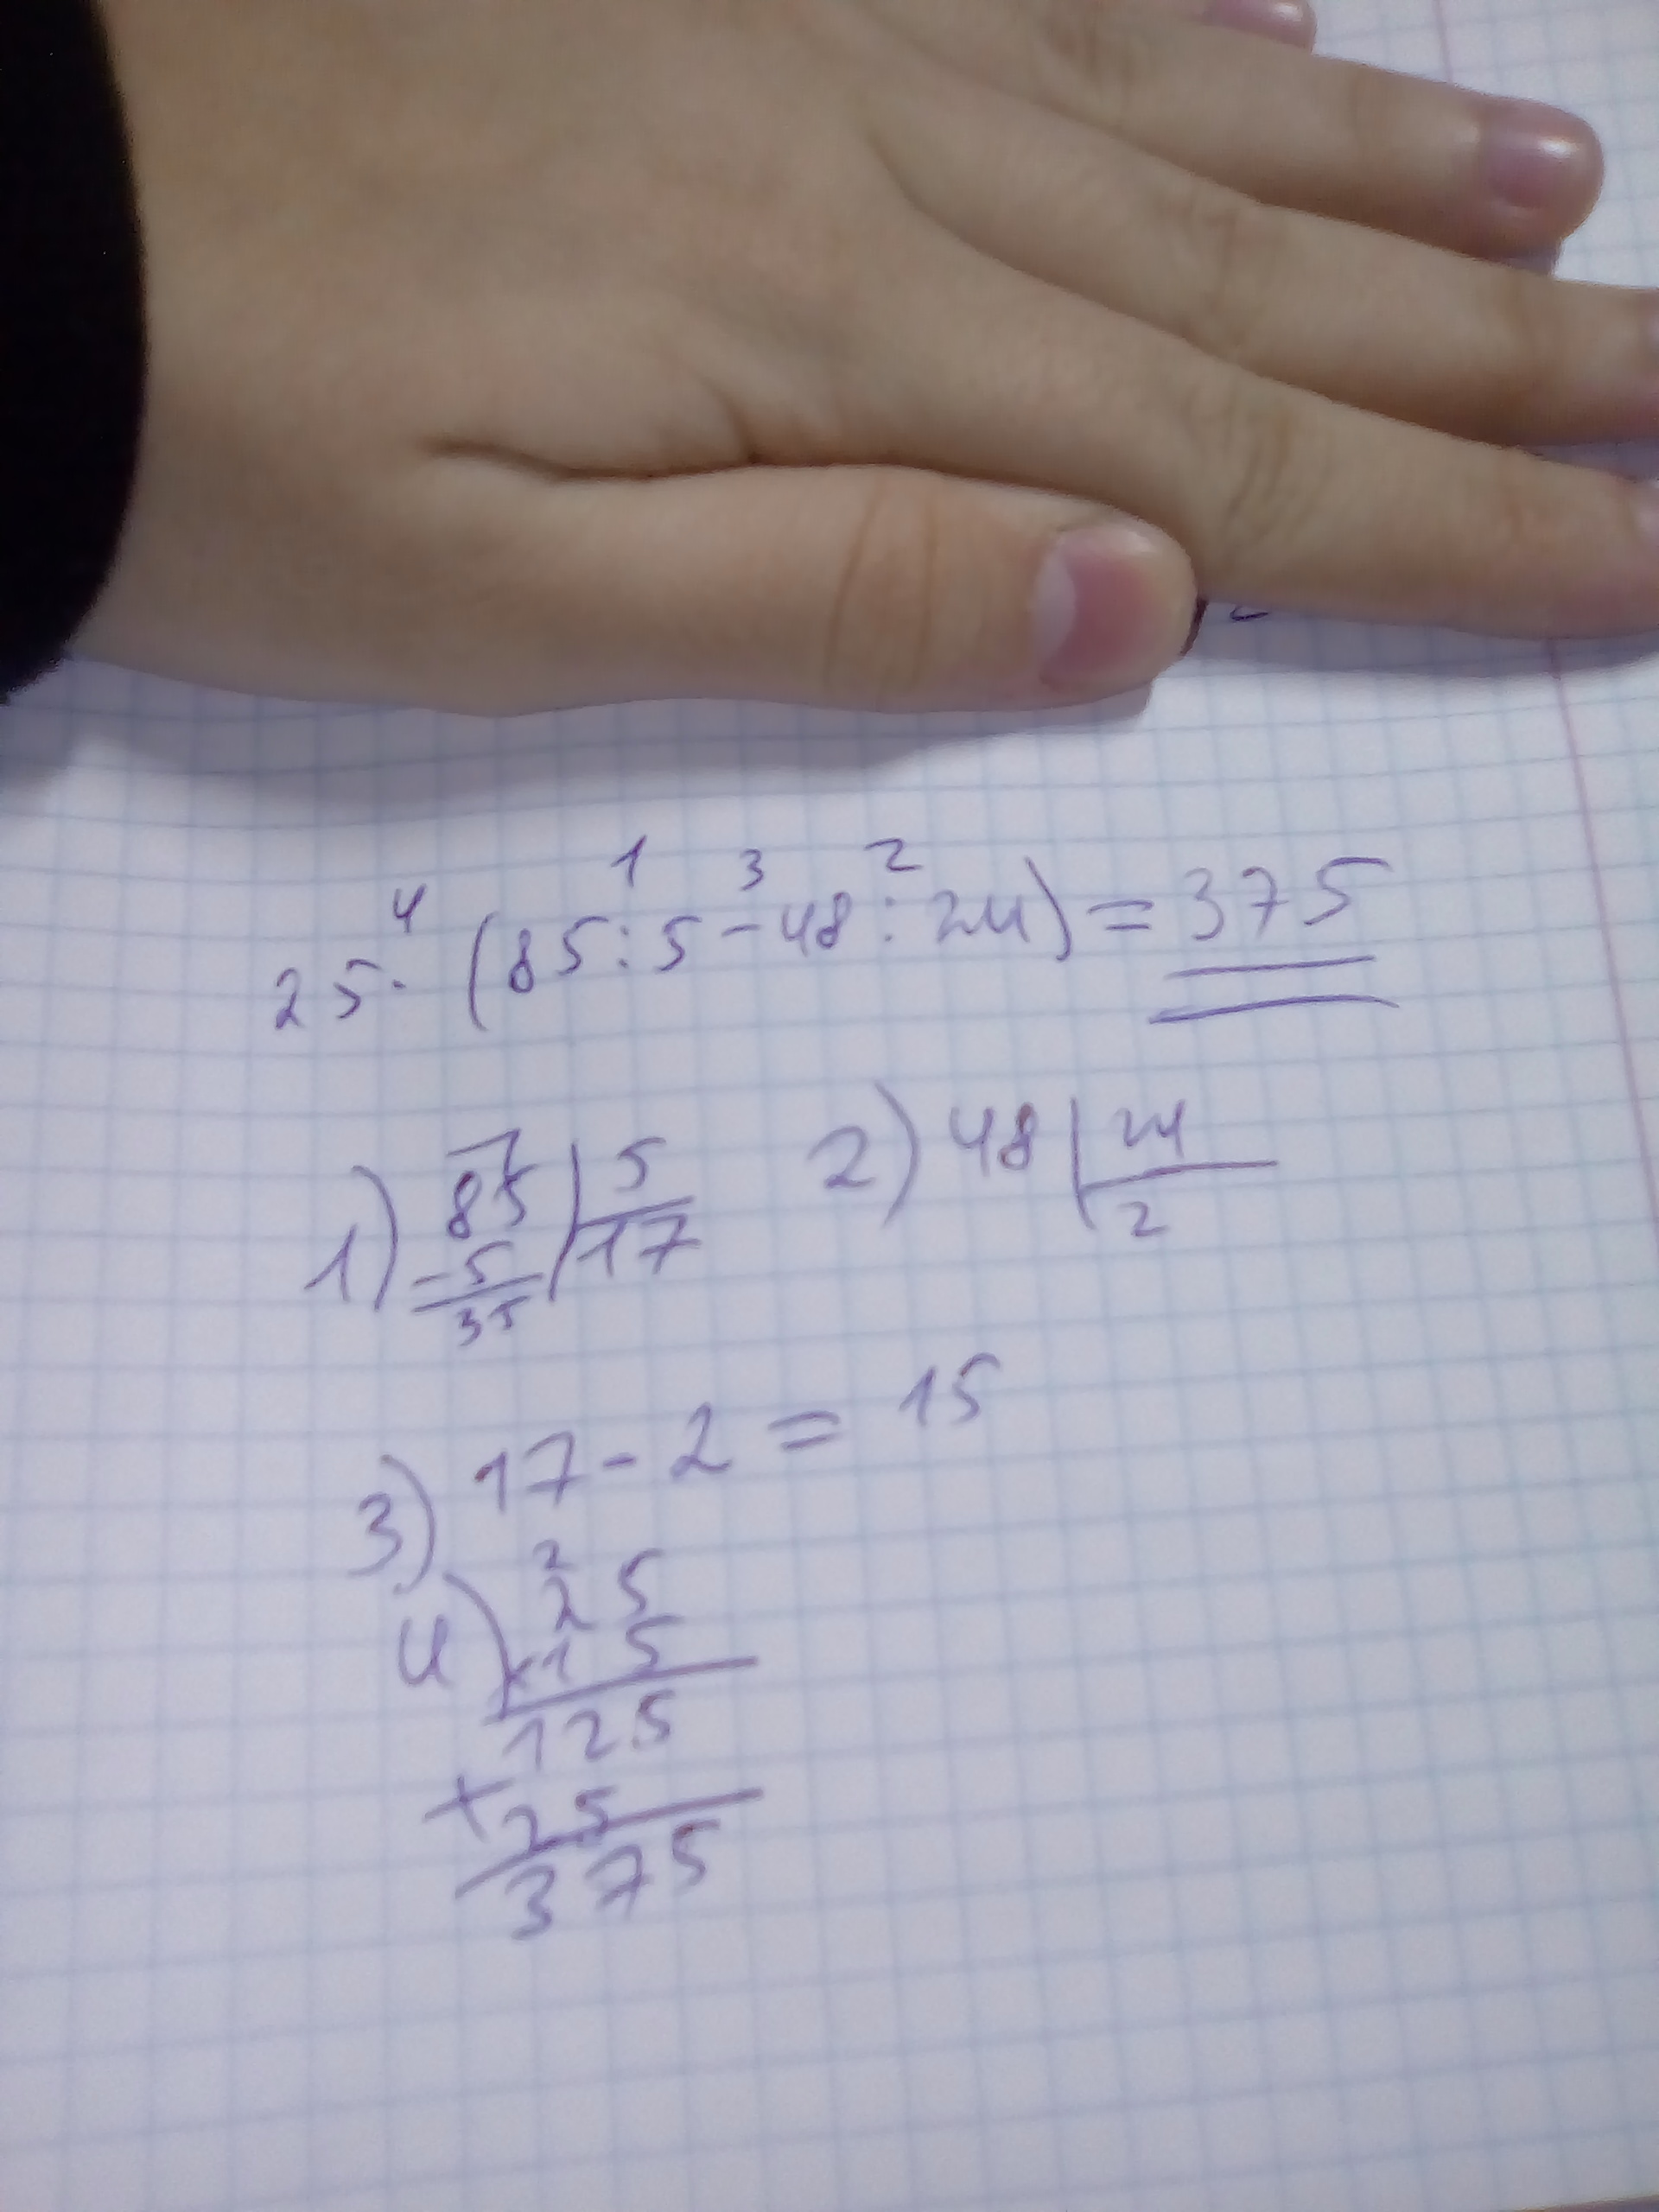 4 1 3 2
25 · (85 : 5 - 48 : 24) = 375
1) 85 | 5 2) 48 | 24
- 5 | 17 2
35
3) 17 - 2 = 15
2
4) 25
×15
125
+
25
375